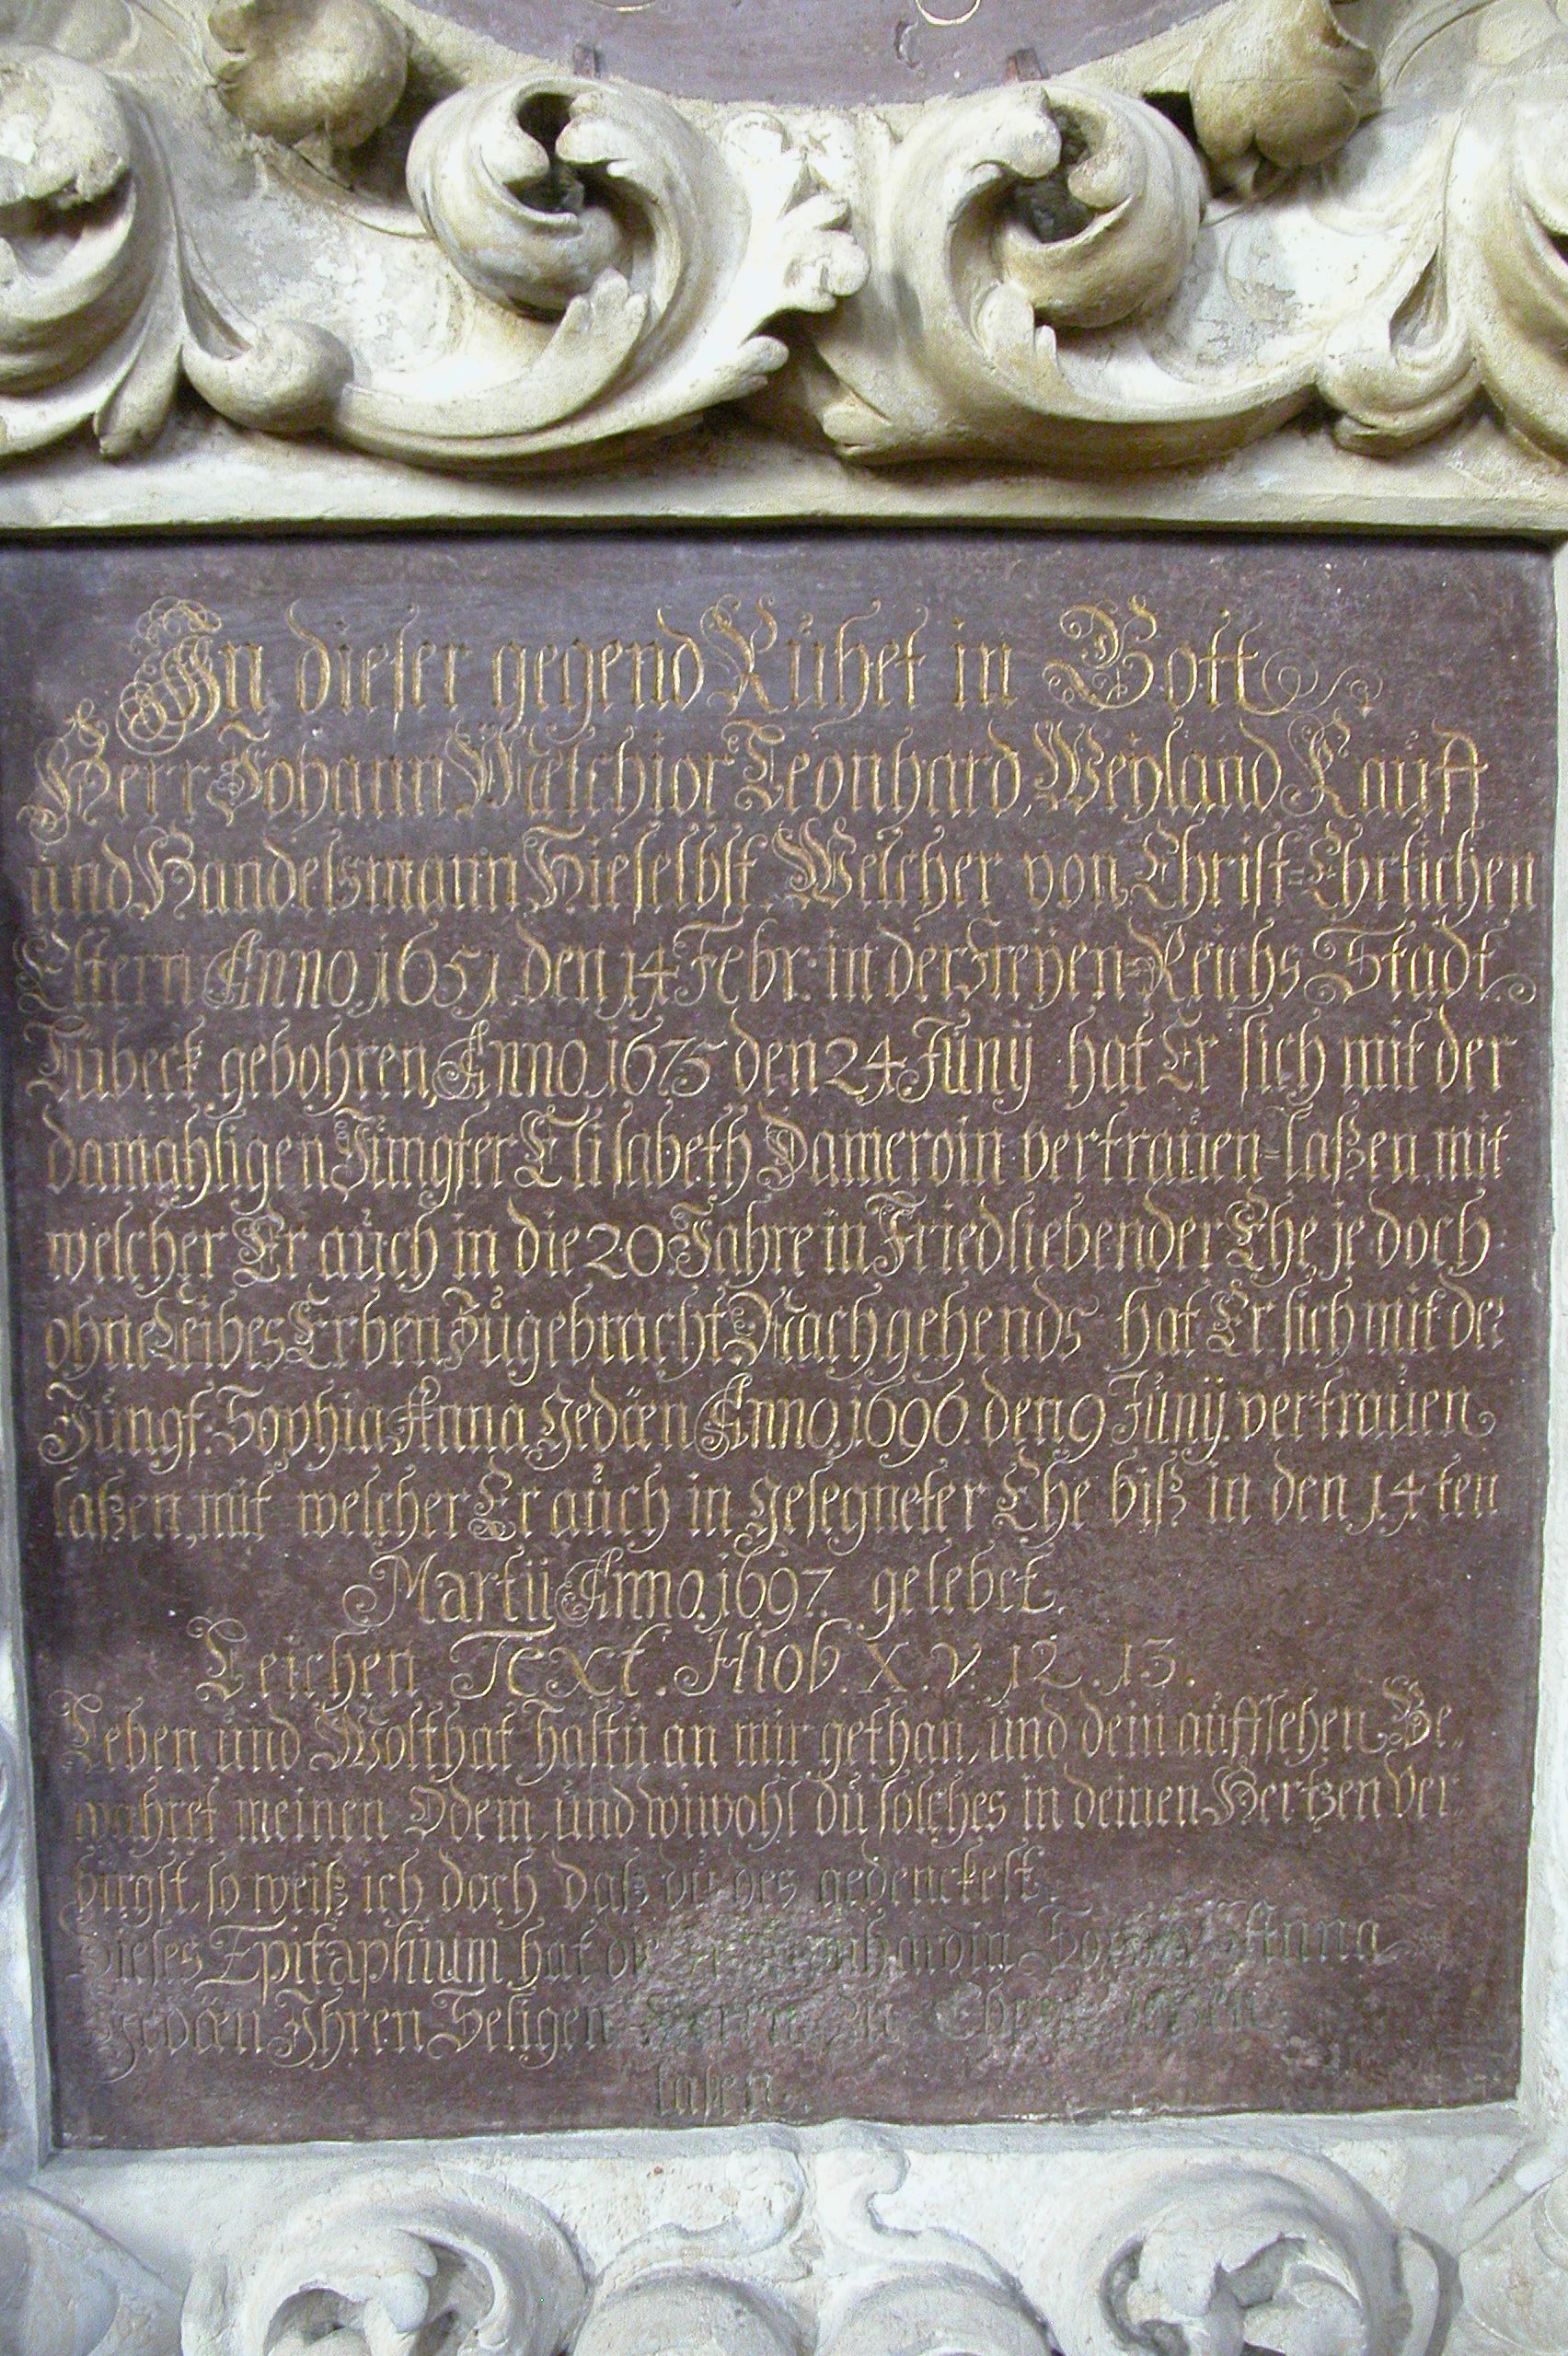 In dieser gegend Rühet in Gott
Herr Johann Melchior Leonhard, Weyland Kauff
und Handelsmann Hieselbst. Welcher von Christ=Ehrlichen
Eltern Anno 1651 den 14 Febr: in der freyen=Reichs Stadt
Lübeck gebohren, Anno 1675 den 24 Jüny hat Er sich mit der
damahligen Jüngfer Elisabeth Dameroin vertrauen=laßen, mit
welcher Er aüch in die 20 Jahre in Friedliebender Ehe je doch
ohne Leibes Erben Zügebracht Nachgehends hat Er sich mit der
Jüngf. Sophia Anna Gedæen Anno 1696 den 9 Jüny vertraüen
laßen, mit welcher Er aüch in geseegneter Ehe biß in den 14 ten
Martii Anno 1697 gelebet.
Leichen Text. Hiob. X. v. 12. 13.
Leben ünd Wolthat hastü an mir gethan, ünd dein aüffsehen Be„
wahret meinen Odem, ünd wiewohl dü solches in deinen Hertzen Ver„
birgst, so weiß ich doch daß dü des gedenckest.
Dieses Epitaphium hat die Sophia Anna
Gedæen Ihren Seligen
laßen.